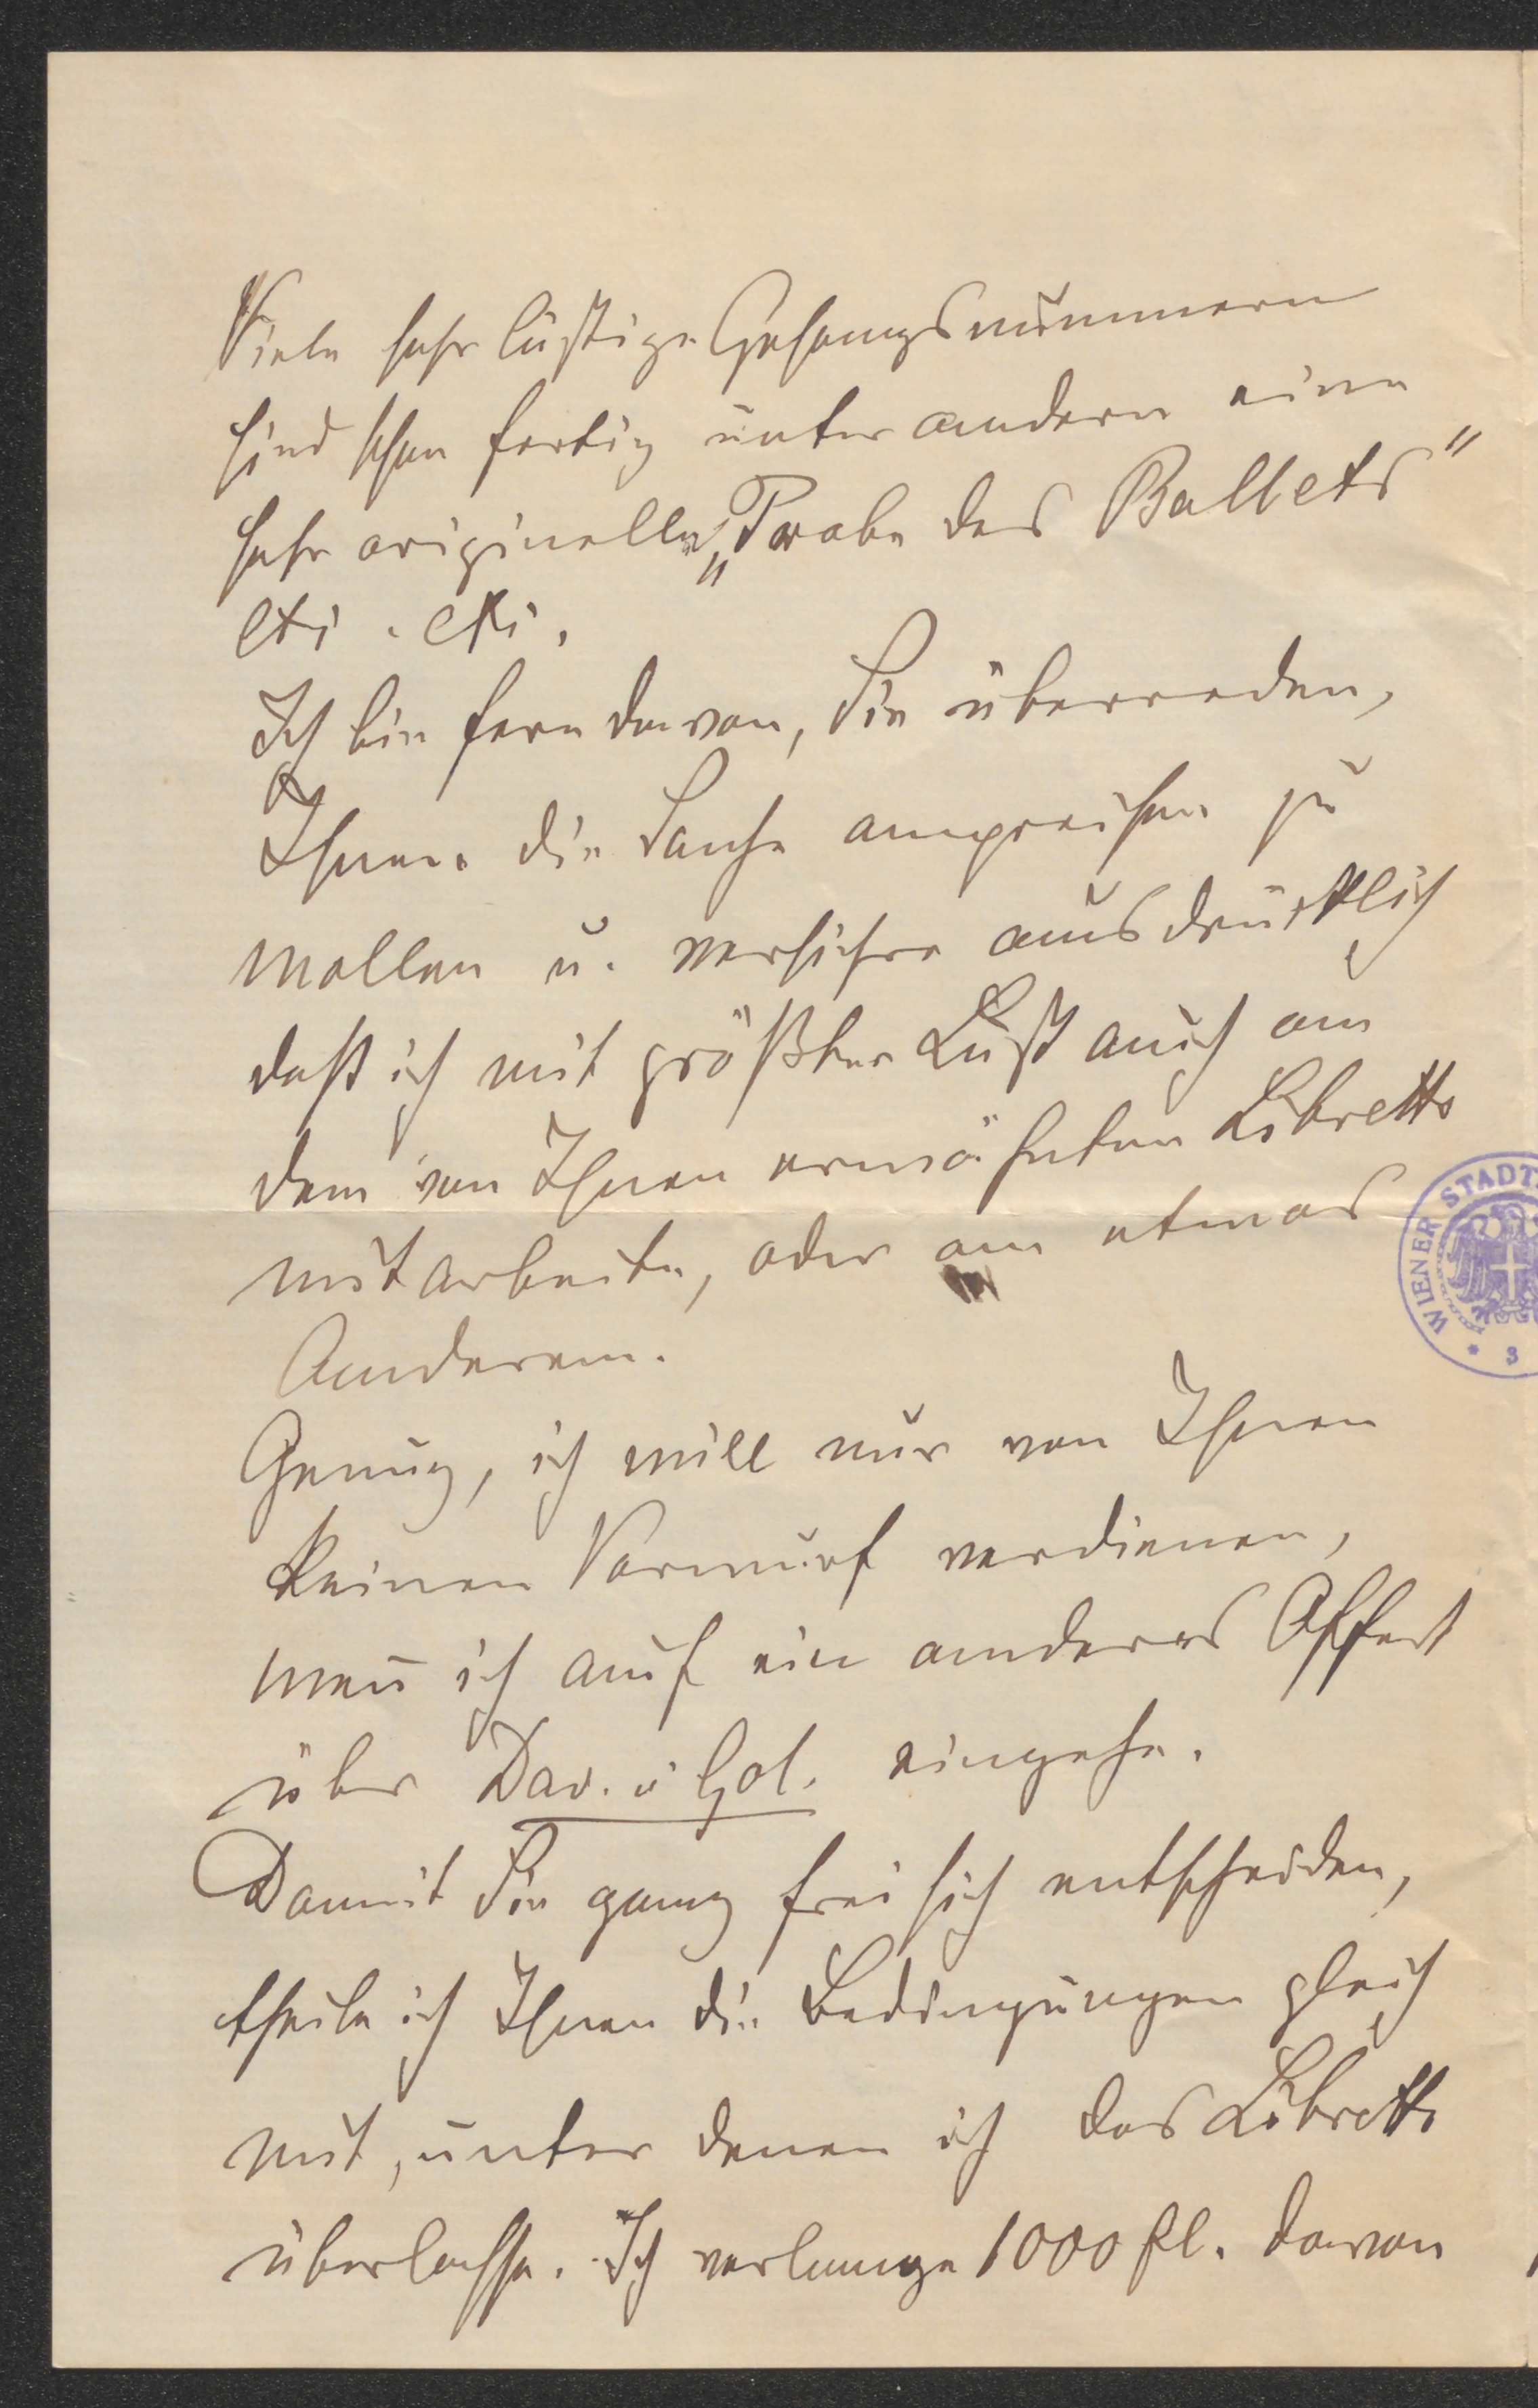 Viele sehr lustige Gesangsnummern
sind schon fertig unter andern eine
sehr originelle „Probe des Ballets"
etc. etc.
Ich bin fern davon, Sie überreden,
Ihnen die Sache anpreisen zu
wollen u. versichre ausdrücklich
daß ich mit größter Lust auch an
dem von Ihnen erwähnten Libretto
mitarbeite, oder an etwas
Anderem.
Genug, ich will nur von Ihnen
keinen Vorwurf verdienen,
wen̄ ich auf ein anderes Offert
über Dav. u Gol. eingehe.
Damit Sie ganz frei sich entscheiden,
theile ich Ihnen die Bedingungen gleich
mit, unter denen ich das Libretto
überlasse. Ich verlange 1000 fl. davon
WIENER STADT